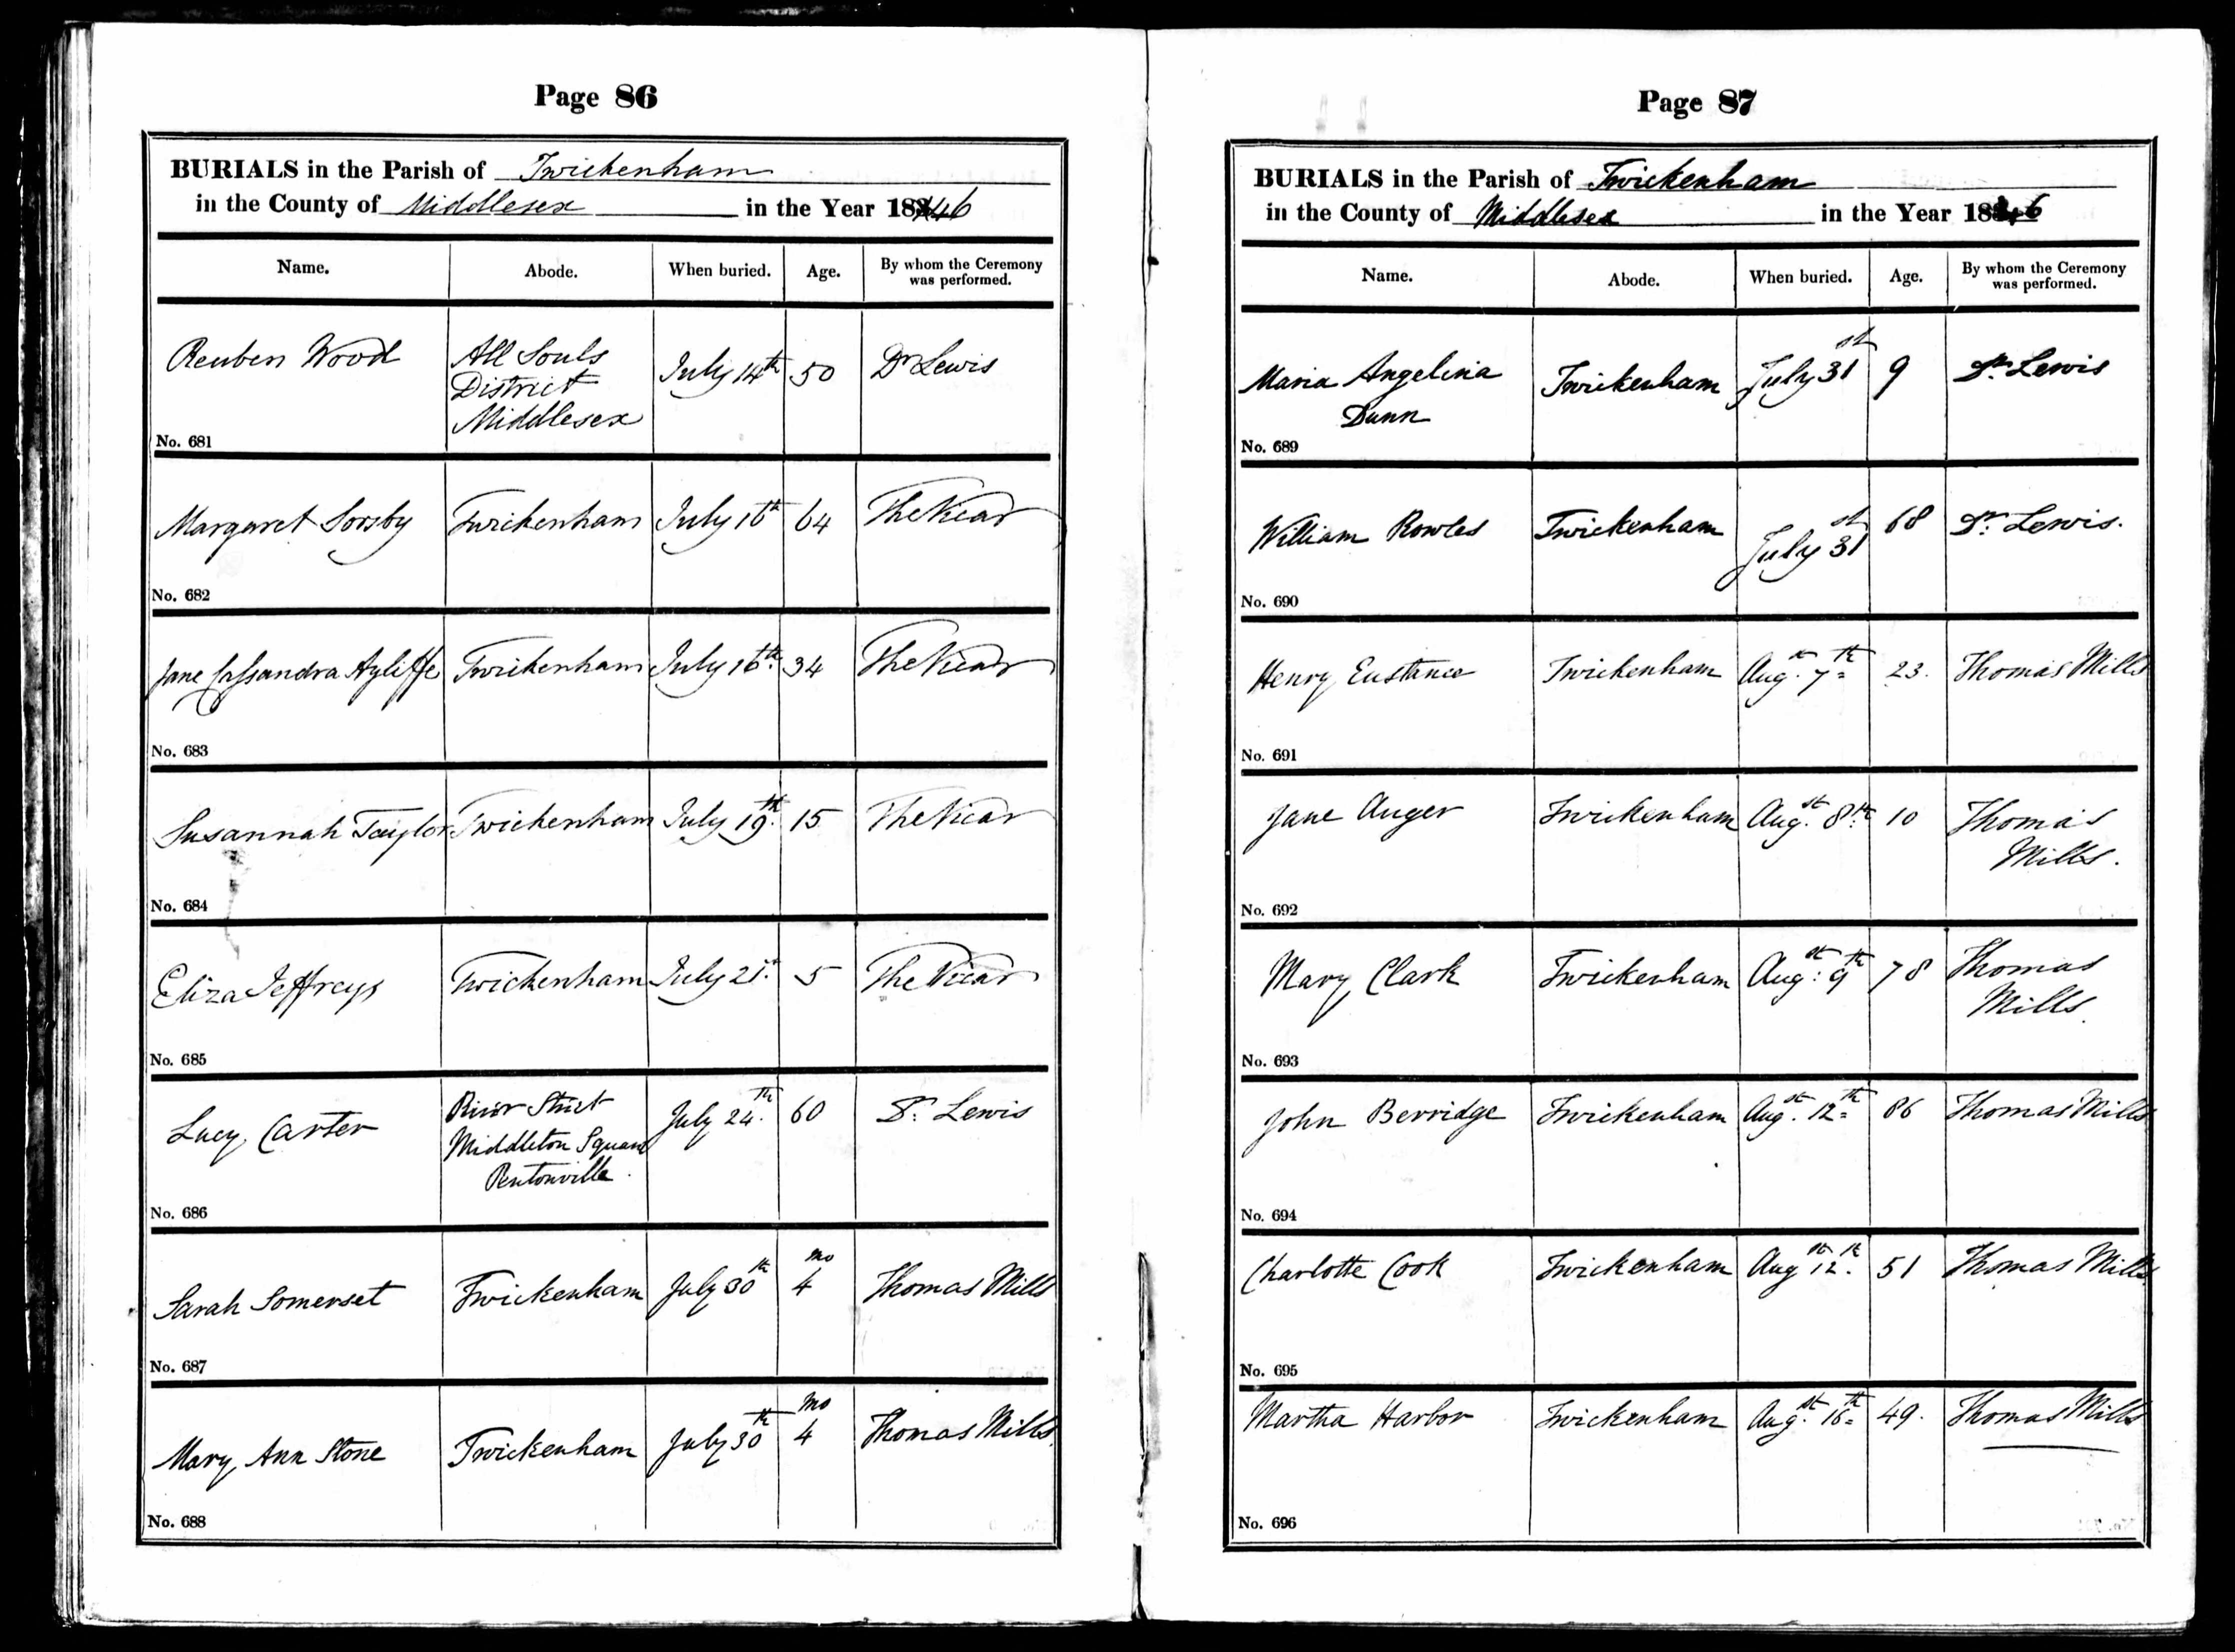 Page 86
BURIALS in the Parish of Twickenham
in the County of Middlesex in the Year 1846
Name. Abode. When buried. Age. By whom the Ceremony was performed.
Reuben Wood All Souls July 14th 50 Dr Lewis
District
Middlesex
No. 681
Margaret Sorsby Twickenham July 16th 64 The Vicar
No. 682
Jane Cassandra Ayliffe Twickenham July 16th 34 The Vicar
No. 683
Susannah Taylor Twickenham July 19th 15 The Vicar
No. 684
Eliza Jeffreys Twickenham July 21st 5 The Vicar
No. 685
Lucy Carter River Street July 24th 60 Dr. Lewis
Middleton Square
Pentonville.
No. 686
mo
Sarah Somerset Twickenham July 30th 4 Thomas Mills
No. 687
mo
Mary Ann Stone Twickenham July 30th 4 Thomas Mills.
No. 688
Page 87
BURIALS in the Parish of Twickenham
in the County of Middlesex in the Year 1846
Name. Abode. When buried. Age. By whom the Ceremony was performed.
Maria Angelina Twickenham July 31st 9 Dr. Lewis
Dunn
No. 689
William Rowles Twickenham July 31st 68 Dr. Lewis.
No. 690
Henry Eustance Twickenham Augst. 7th 23. Thomas Mills
No. 691
Jane Auger Twickenham Augst. 8th 10 Thomas
Mills.
No. 692
Mary Clark Twickenham Augst. 9th 78 Thomas
Mills.
No. 693
John Berridge Twickenham Augst. 12th 86 Thomas Mills
No. 694
Charlotte Cook Twickenham Augst 12th. 51 Thomas Mills
No. 695
Martha Harbor Twickenham Augst. 16th 49. Thomas Mills
No. 696